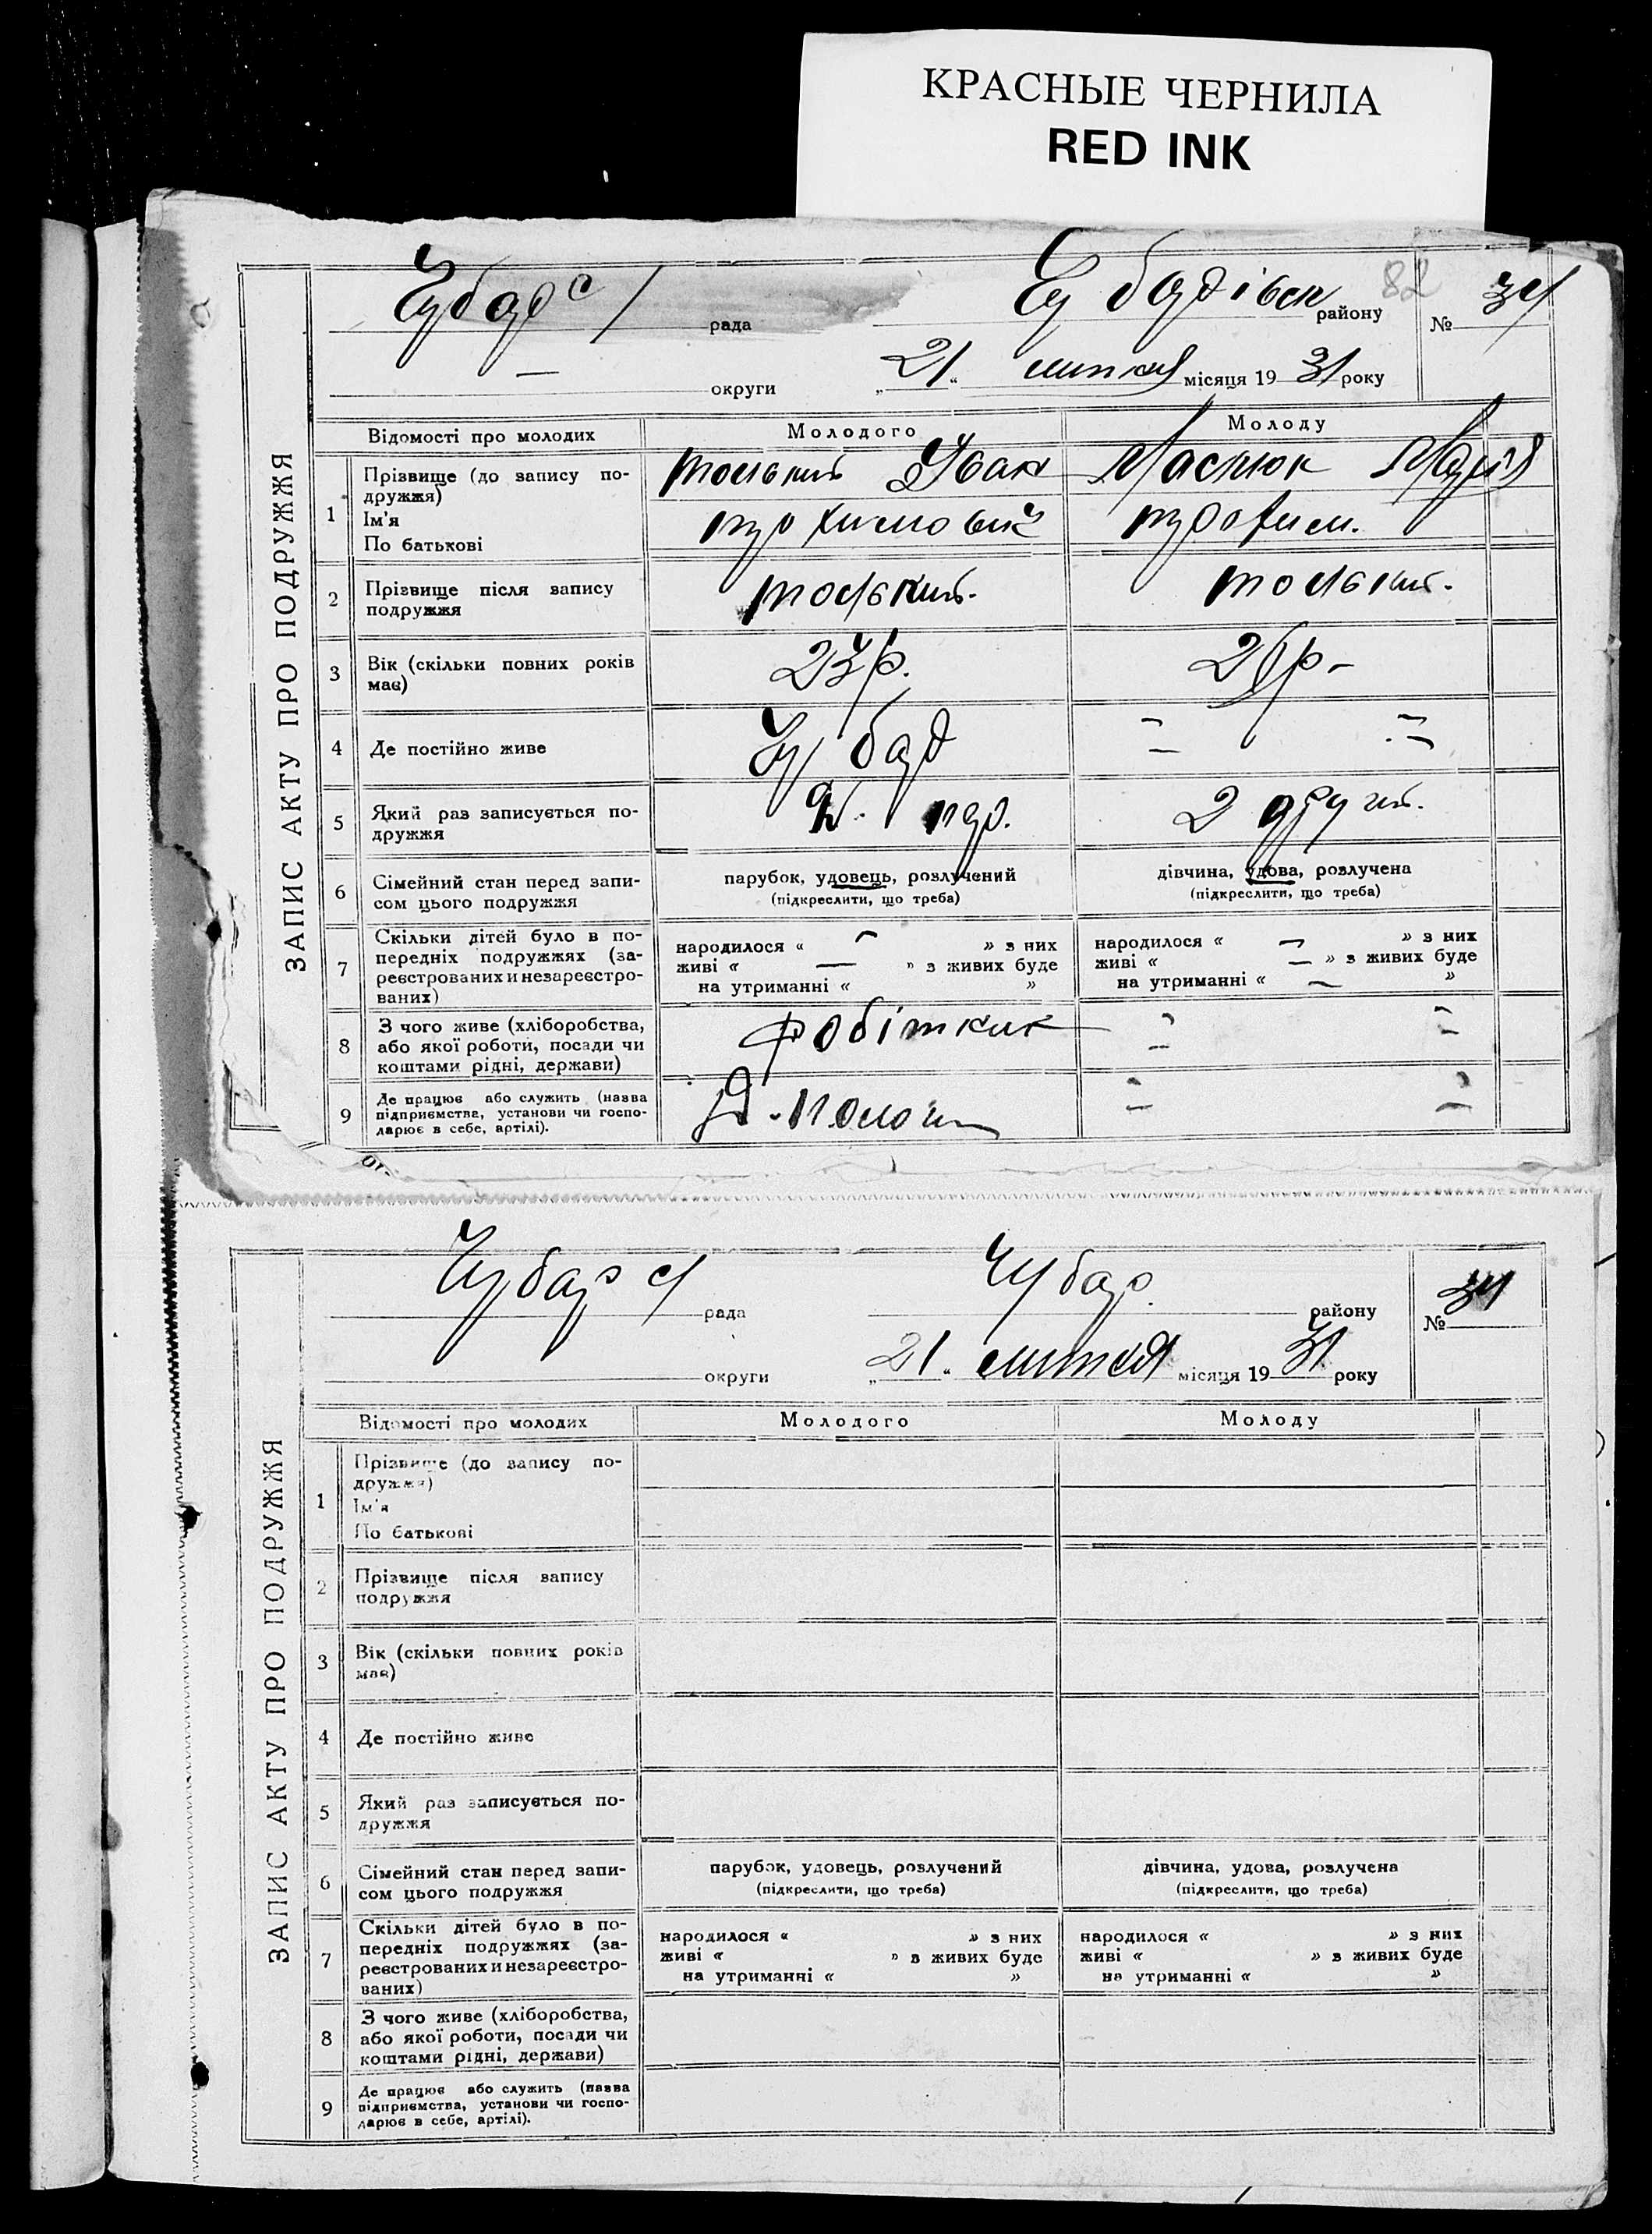 КРАСНЫЕ ЧЕРНИЛА
RED INK
Чубар с/ рада Чубарівськ району 82 № 34
— округи „21“ лютня місяця 1931 року
ЗАПИС АКТУ ПРО ПОДРУЖЖЯ
Відомості про молодих Молодого Молоду
1 Прізвище (до запису по-
дружжя)
Ім'я
По батькові
Іван
Трохимович
Маслюк Марія
Трохим.
2 Прізвище після запису
подружжя
3 Вік (скільки повних років
має)
23 р. 26 р –
4 Де постійно живе Чубар – –
5 Який раз записується по-
дружжя
2 другий.
6 Сімейний стан перед запи-
сом цього подружжя
парубок, удовець, розлучений
(підкреслити, що треба)
дівчина, удова, розлучена
(підкреслити, що треба)
7 Скільки дітей було в по-
передніх подружжях (за-
реєстрованих и незареєстро-
ваних)
народилося « — » з них
живі « — » з живих буде
на утриманні « »
народилося « — » з них
живі « — » з живих буде
на утриманні « — »
8 З чого живе (хліборобства,
або якої роботи, посади чи
коштами рідні, держави)
робітник
9 Де працює або служить (назва
підприємства, установи чи госпо-
дарює в себе, артілі).
Чубар с/ рада Чубар. району № 34
округи „21“ лютня місяця 1931 року
ЗАПИС АКТУ ПРО ПОДРУЖЖЯ
Відомості про молодих Молодого Молоду
1 Прізвище (до запису по-
дружжя)
Ім'я
По батькові
2 Прізвище після запису
подружжя
3 Вік (скільки повних років
має)
4 Де постійно живе
5 Який раз записується по-
дружжя
6 Сімейний стан перед запи-
сом цього подружжя
парубок, удовець, розлучений
(підкреслити, що треба)
дівчина, удова, розлучена
(підкреслити, що треба)
7 Скільки дітей було в по-
передніх подружжях (за-
реєстрованих и незареєстро-
ваних)
народилося « » з них
живі « » з живих буде
на утриманні « »
народилося « » з них
живі « » з живих буде
на утриманні « »
8 З чого живе (хліборобства,
або якої роботи, посади чи
коштами рідні, держави)
9 Де працює або служить (назва
підприємства, установи чи госпо-
дарює в себе, артілі).